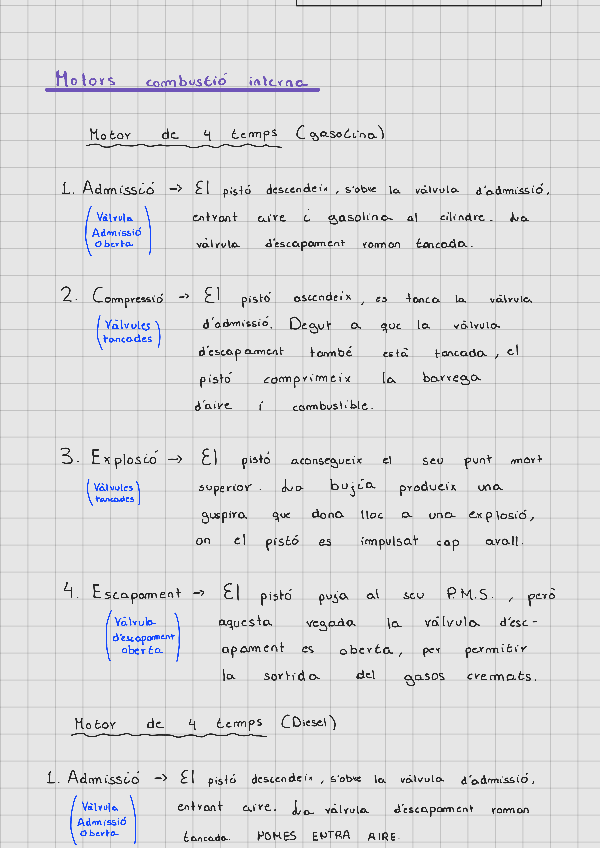 Motors combustió interna
Motor de 4 temps (gasolina)
1. Admissió -> El pistó descendeix, s'obre la vàlvula d'admissió,
(Vàlvula Admissió Oberta)
entrant aire i gasolina al cilindre. La
vàlvula d'escapament roman tancada.
2. Compressió -> El pistó ascendeix, es tanca la vàlvula
(Vàlvules tancades)
d'admissió. Degut a que la vàlvula
d'escapament també està tancada, el
pistó comprimeix la barrega
d'aire i combustible.
3. Explosió -> El pistó aconsegueix el seu punt mort
(Vàlvules tancades)
superior. La bujía produeix una
guspira que dona lloc a una explosió,
on el pistó es impulsat cap avall.
4. Escapament -> El pistó puja al seu P.M.S., però
(Vàlvula d'escapament oberta)
aquesta vegada la vàlvula d'esc-
apament es oberta, per permetir
la sortida del gasos cremats.
Motor de 4 temps (Diesel)
1. Admissió -> El pistó descendeix, s'obre la vàlvula d'admissió,
(Vàlvula Admissió Oberta)
entrant aire. La vàlvula d'escapament roman
tancada. NOMES ENTRA AIRE.